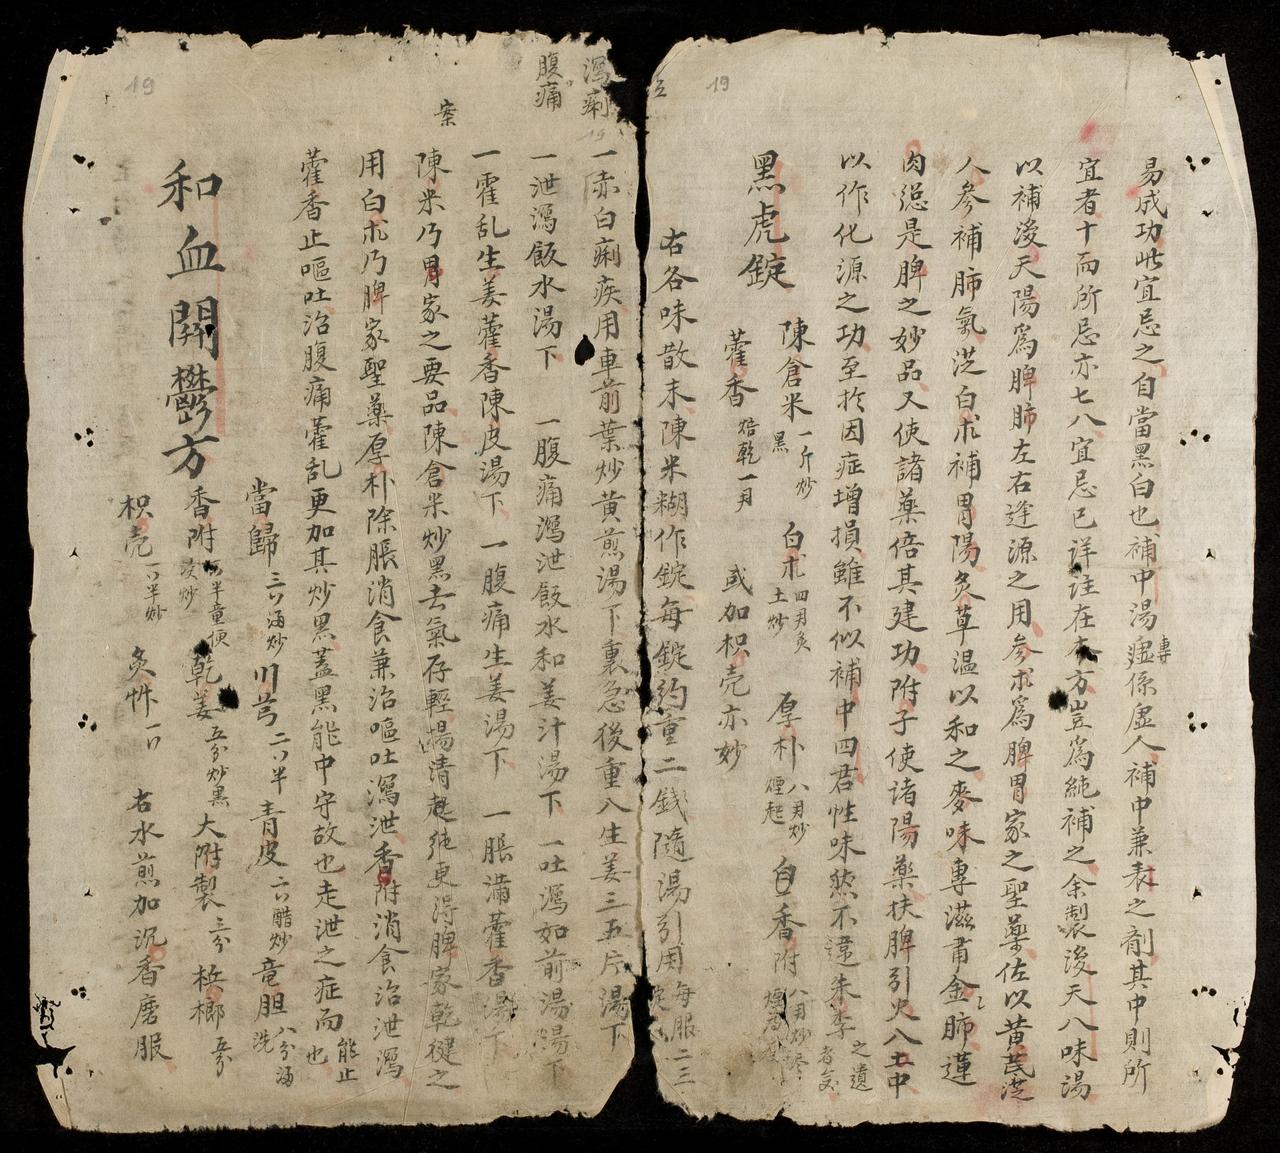 19
易成功此宜忌之自當黑白也補中湯專虛係虛人補中兼表之劑其中則所
宜者十而所忌亦七八宜忌已詳註在本方豈爲純補之余製後天八味湯
以補後天陽爲脾肺左右逢源之用參朮爲脾胃家之聖藥佐以黄芪
人參補肺氣白朮補胃陽灸草温以和之麥味專滋肅金肺蓮
肉总是脾之妙品又使諸藥倍其建功附子使诸陽藥扶脾引火八土中
以作化源之功至於因症增損雖不似補中四君性味然不違朱李之遺
黑虎錠
陳倉米一斤炒黑
白朮四月灸土炒
厚朴八月炒
香附八月炒
藿香焙乾一月
或加枳壳亦妙
右各味散末陳米糊作錠每錠約重二錢隨湯引用每服二三
19
瀉痢
一赤白痢疾用車前葉炒黄煎湯下裏急後重八生姜三五片湯下
腹痛
一泄瀉飯水湯下
一腹痛瀉泄飯水和姜汁湯下
一吐瀉如前湯湯下
一霍乱生姜藿香陳皮湯下
一腹痛生姜湯下
一脹滿藿香湯下
案
陳米乃胃家之要品陳倉米炒黑去氣存輕揚清純更得脾家乾健之
用白朮乃脾家聖藥厚朴除脹消食兼治嘔吐瀉泄香附消食治泄瀉
藿香止嘔吐治腹痛藿乱更加其炒黑蓋黑能中守故也走泄之症而能止也
和血開鬱方
當歸
川芎
青皮
竜胆
香附
乾姜五分炒黑
大附製三分
梹榔
枳壳
灸艸
右水煎加沉香磨服